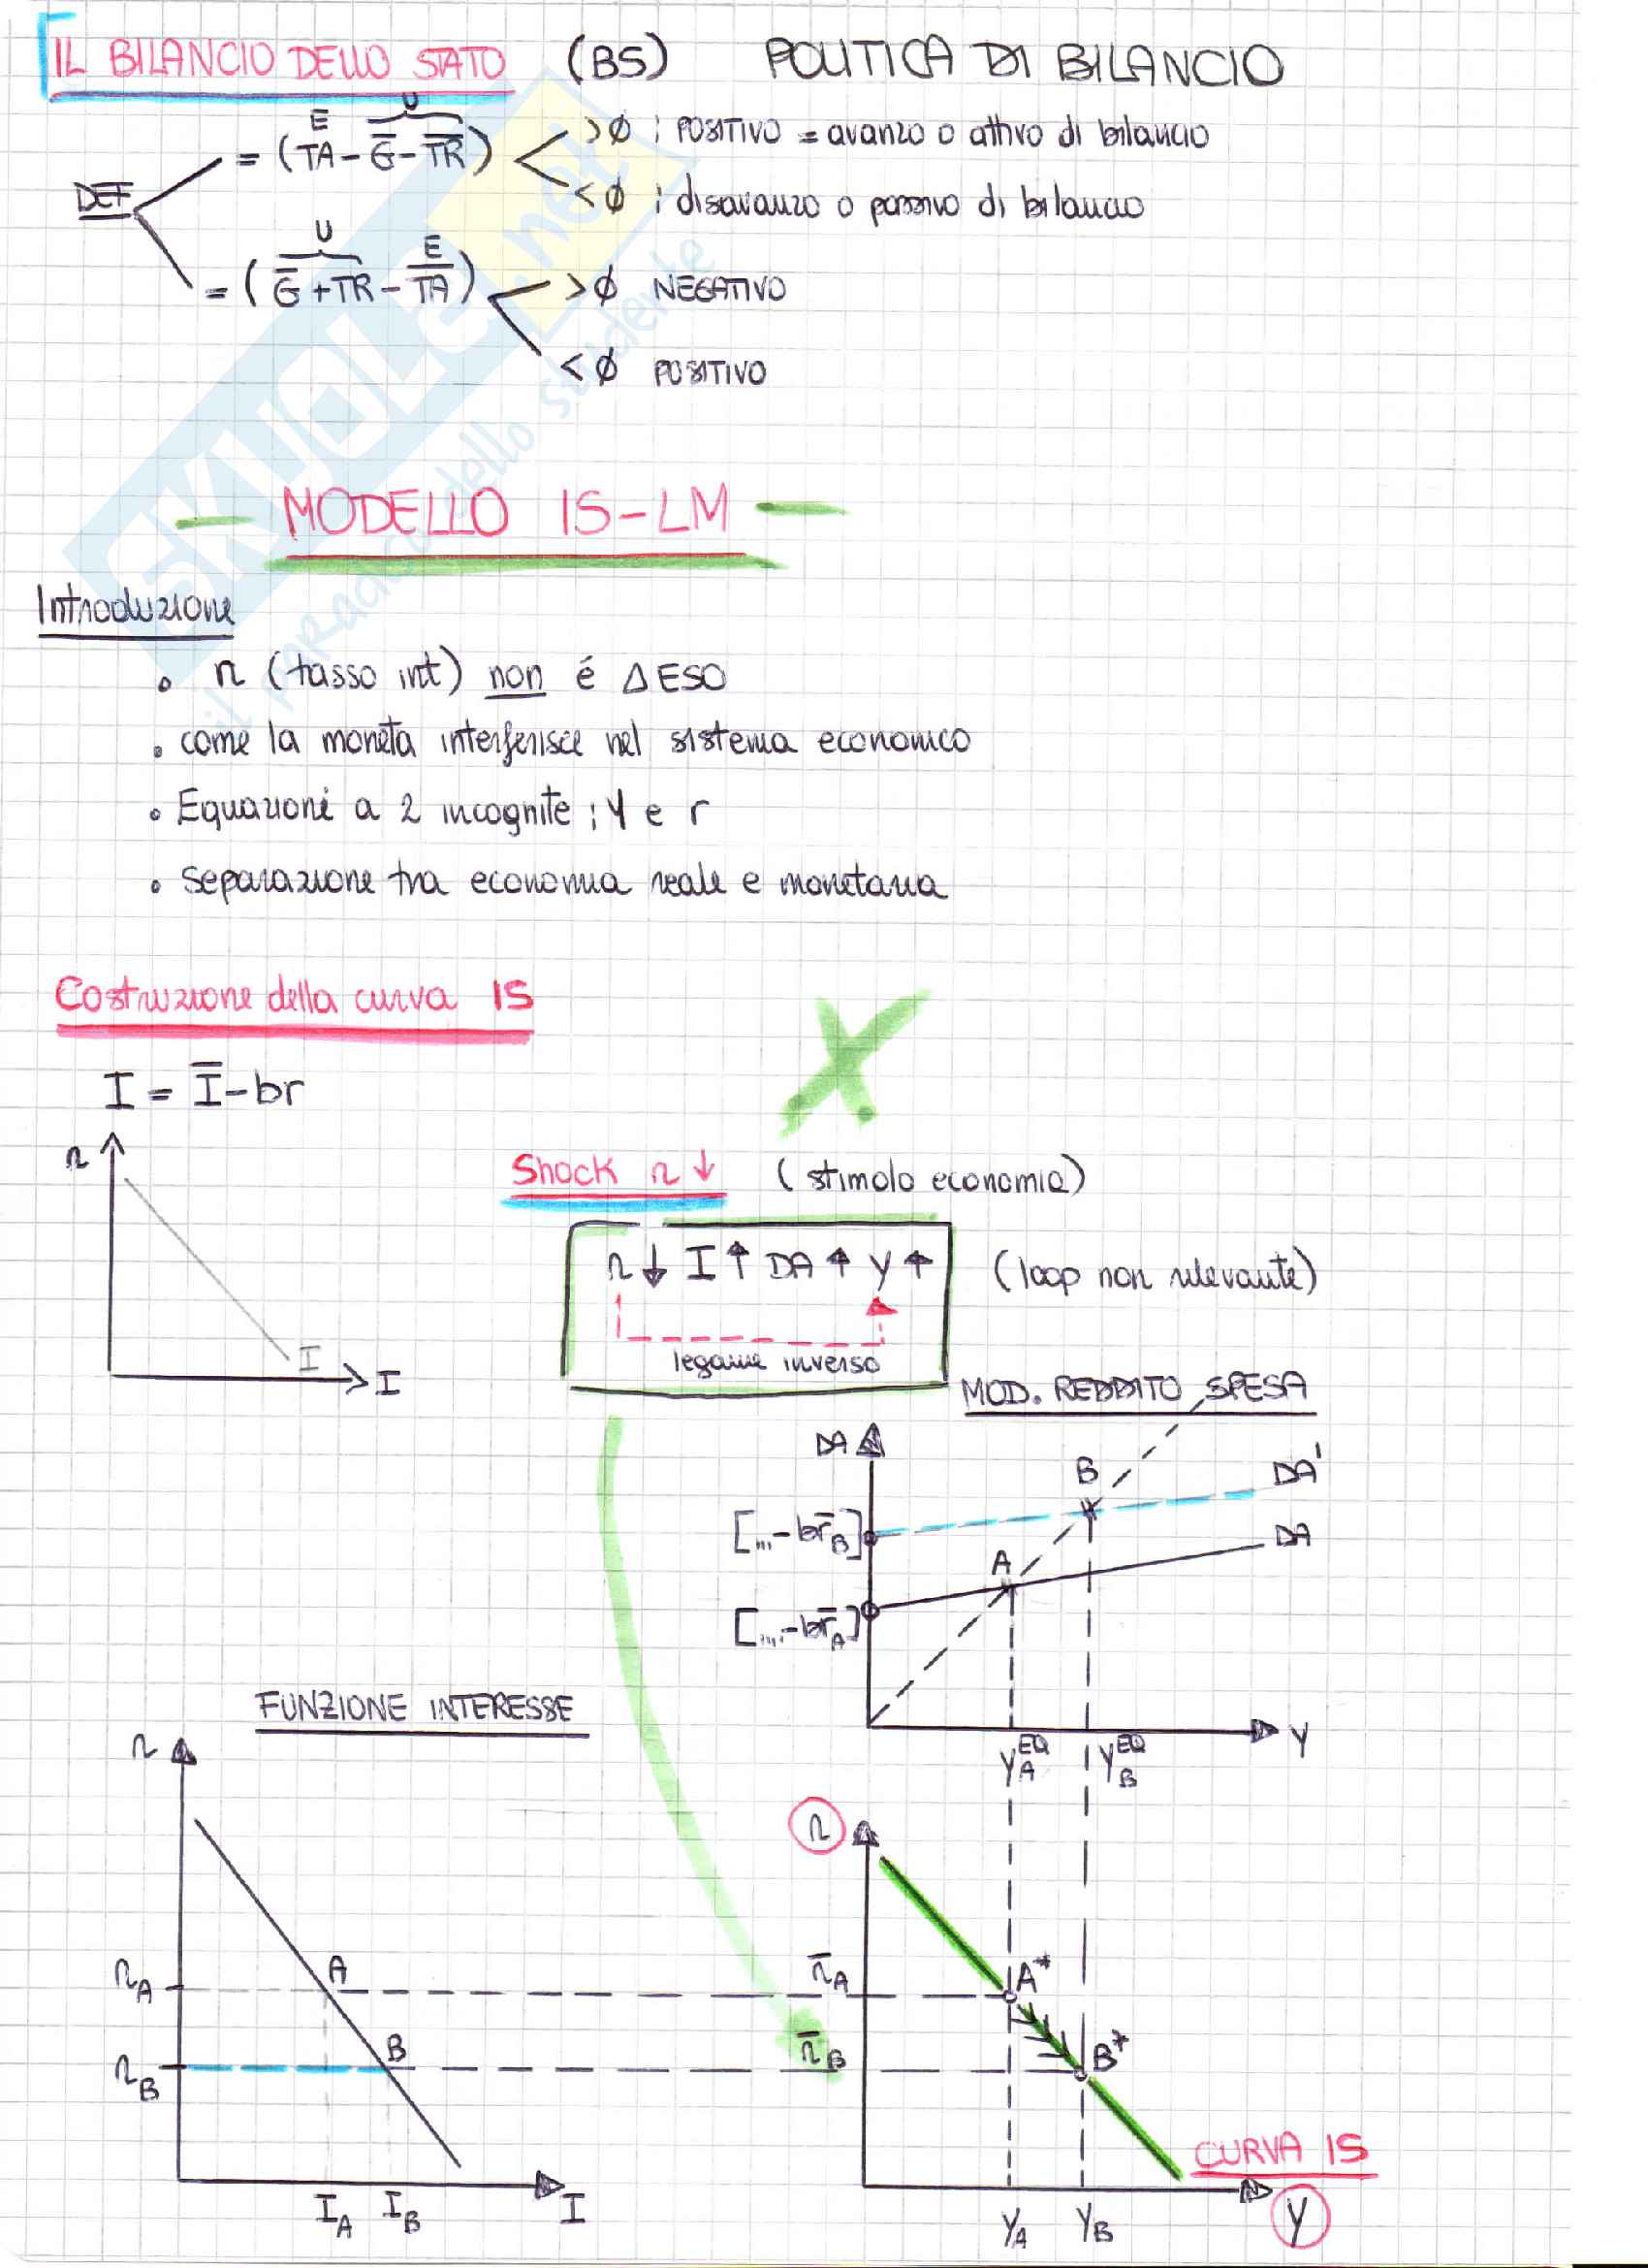 IL BILANCIO DELLO STATO (BS) POLITICA DI BILANCIO
E U
= (TA - G̅ - T̅R̅) >∅ : POSITIVO = avanzo o attivo di bilancio
DEF
<∅ : disavanzo o passivo di bilancio
U E
= (G̅ + T̅R̅ - TA) >∅ NEGATIVO
<∅ POSITIVO
SKUOLA.net
il paradiso dello studente
MODELLO IS-LM
Introduzione
• r (tasso int) non é ΔESO
• come la moneta interferisce nel sistema economico
• Equazioni a 2 incognite ; Y e r
• separazione tra economia reale e monetaria
Costruzione della curva IS
I = I̅ - br
r
I
I
Shock r ↓ (stimolo economia)
r ↓ I ↑ DA ↑ Y ↑ (loop non rilevante)
legame inverso
MOD. REDDITO SPESA
DA
B
DA'
[...-br̅B]
DA
A
[...-br̅A]
Y
YA EQ YB EQ
FUNZIONE INTERESSE
r
A
rA
B
rB
IA IB I
r
r̅A A*
r̅B B*
CURVA IS
YA YB Y